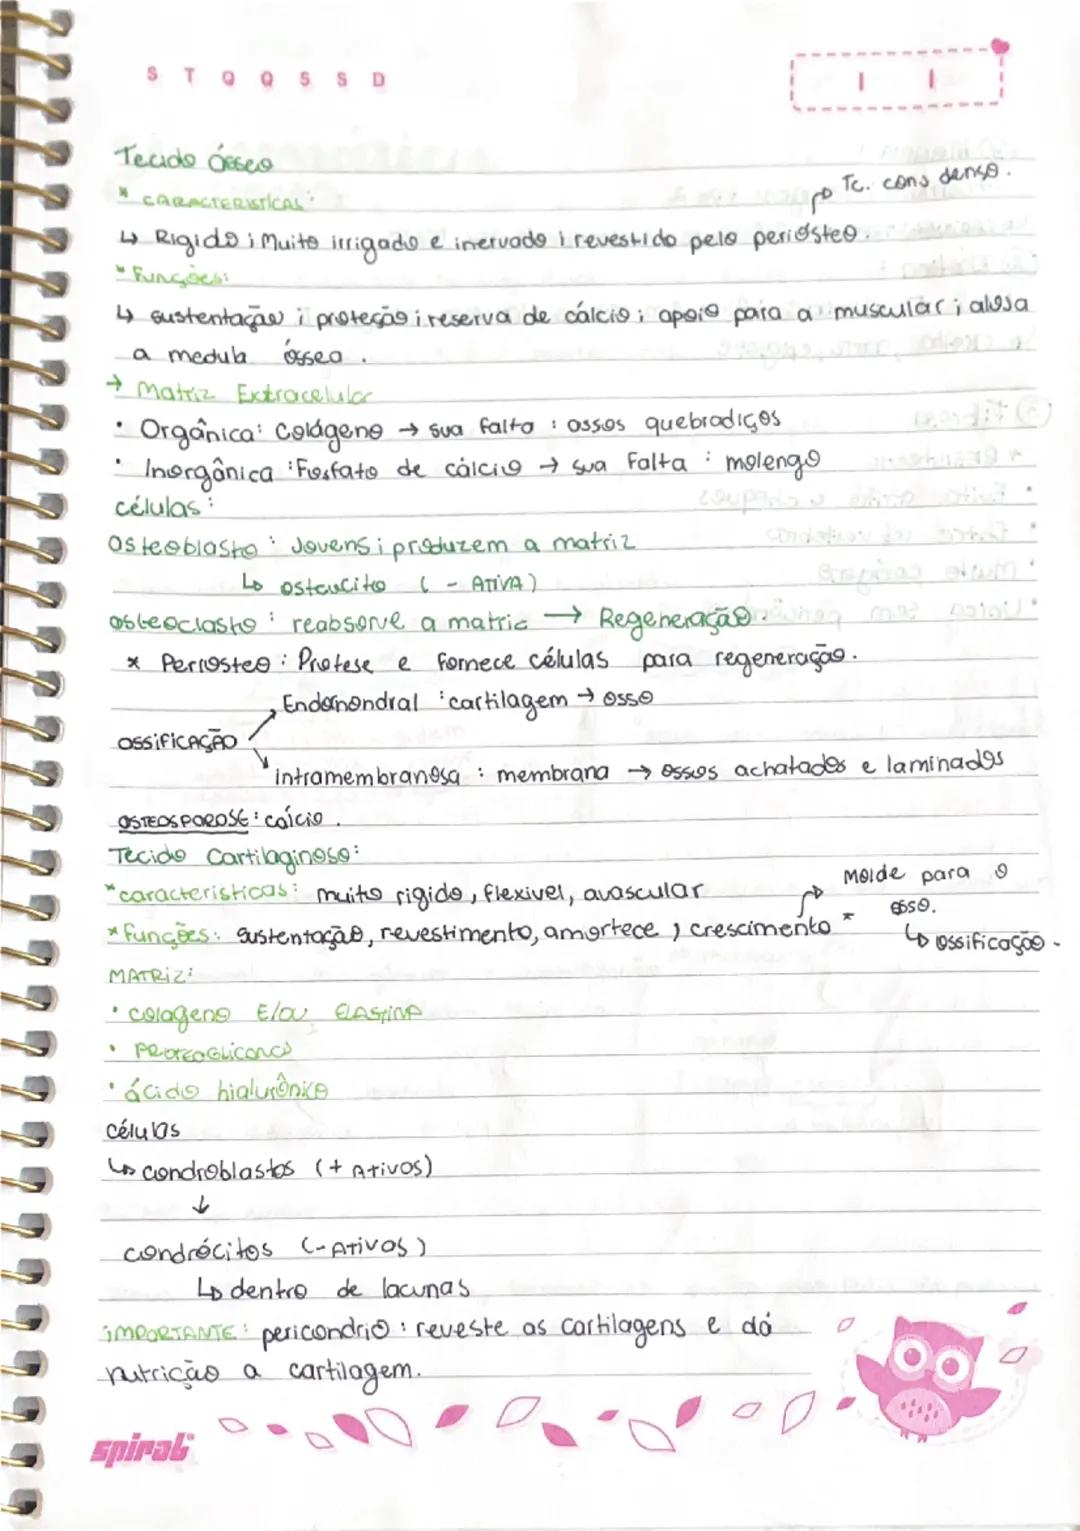 S T Q Q S S D
Tecido Ósseo
Tc. cons denso.
* CARACTERISTICAS:
↳ Rigido; Muito irrigado e inervado; revestido pelo periósteo.
* Funções:
↳ sustentação; proteção; reserva de cálcio; apoio para a muscular; alosa
a medula ósseo.
→ Matriz Extracelular
• Orgânica: Colágeno → sua falta: ossos quebradiços
• Inorgânica: Fosfato de cálcio → sua Falta: molengo
células:
Osteoblasto: Jovens; produzem a matriz
↳ osteocito (- ATIVA)
osteoclasto: reabsorve a matriz → Regeneração.
* Periosteo: Protese e fornece células para regeneração.
Endonondral: cartilagem → osso
OSSIFICAÇÃO
intramembranosa: membrana → ossos achatados e laminados
OSTEOSPOROSE: cálcio.
Tecido Cartilaginoso:
Molde para o
* caracteristicas: muito rigido, flexivel, avascular
osso.
* Funções: sustentação, revestimento, amortece, crescimento *
↳ ossificação.
MATRIZ:
• colageno E/OU ELASTINA
• PROTEOGLICANAS
• ácido hialurônico
células
↳ condroblastos (+ Ativos)
↓
condrócitos (- Ativos)
↳ dentro de lacunas
IMPORTANTE: pericondrio: reveste as cartilagens e dá
nutrição a cartilagem.
spiral